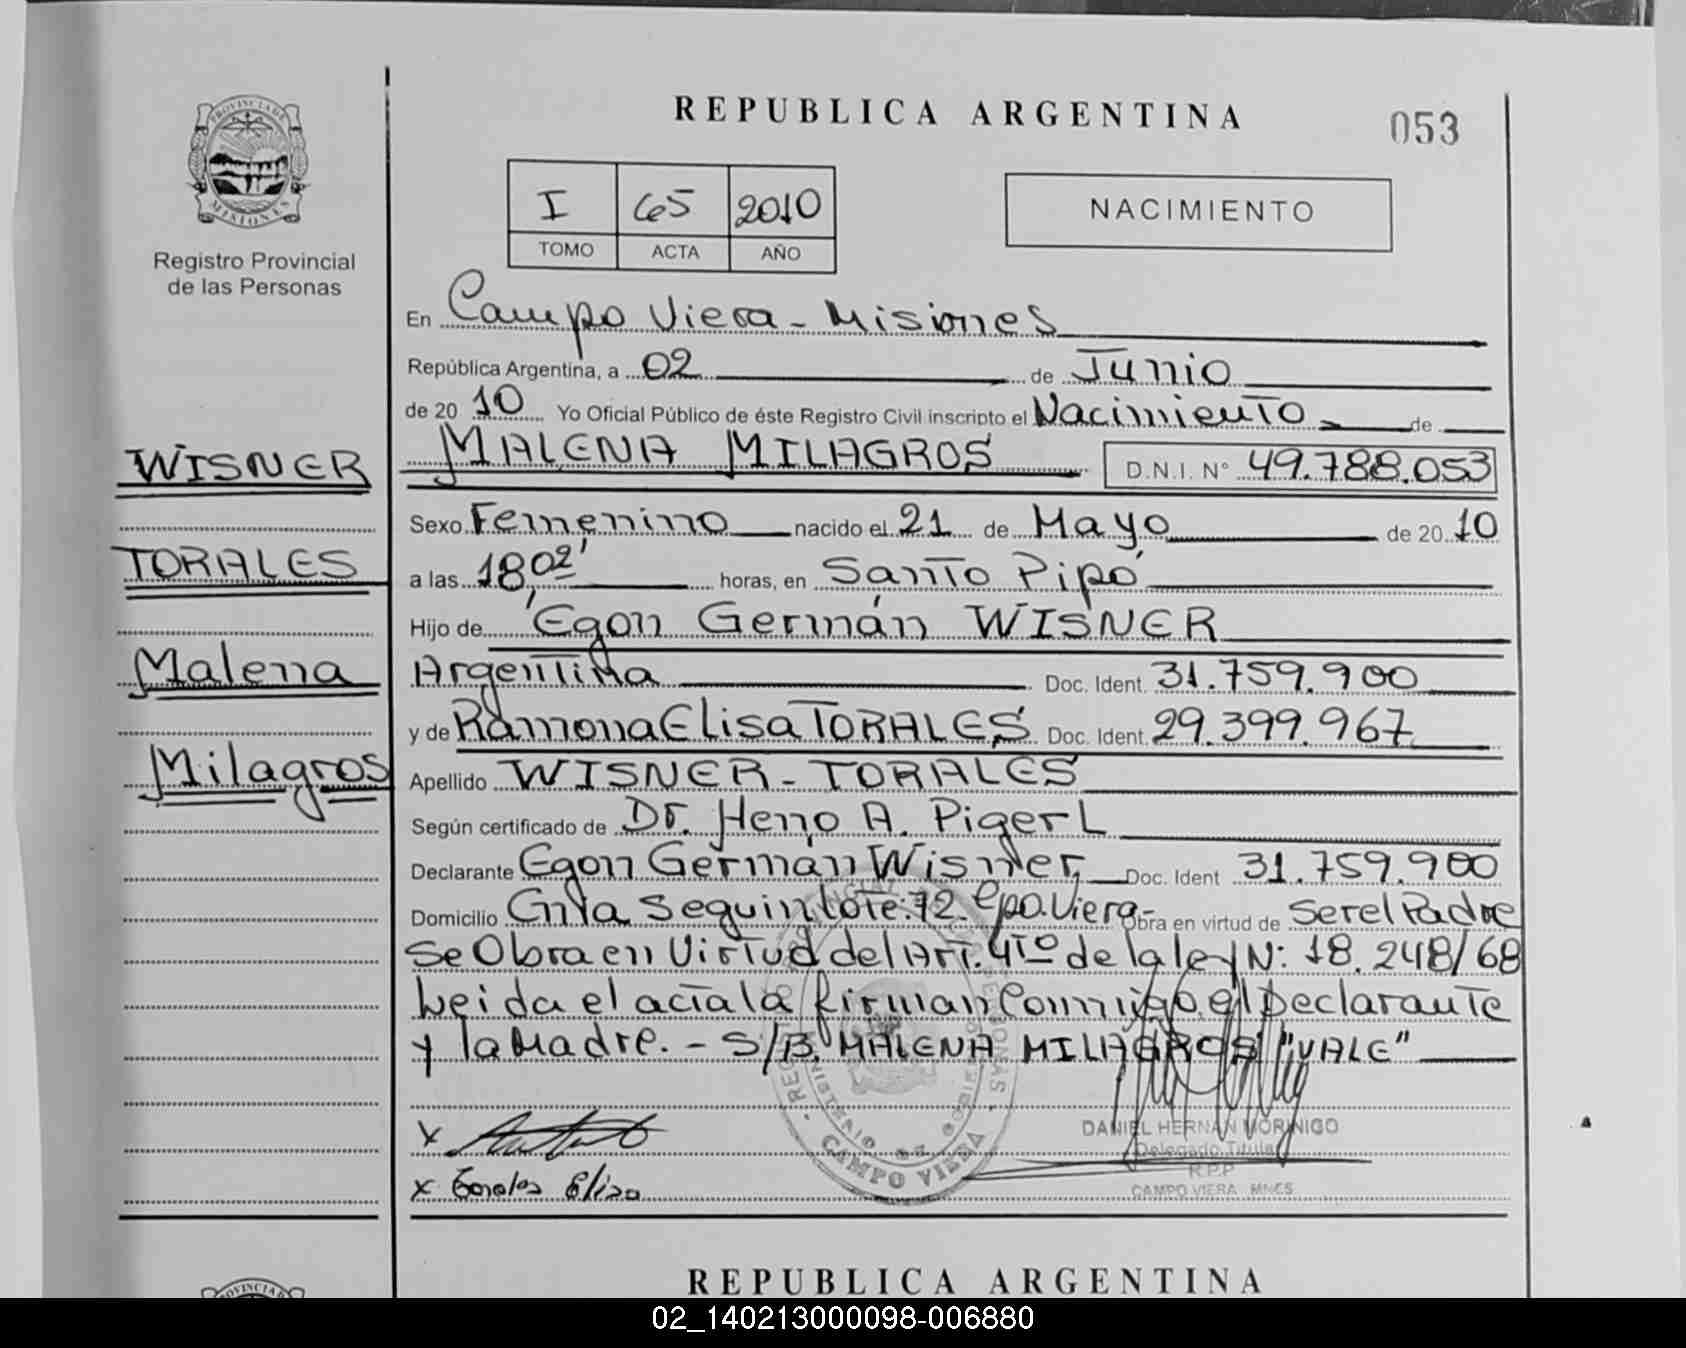 REPUBLICA ARGENTINA
053
PROVINCIA DE
MISIONES
Registro Provincial
de las Personas
I 65 2010
TOMO ACTA AÑO
NACIMIENTO
En Campo Viera - Misiones
República Argentina, a 02 de Junio
de 20 10 Yo Oficial Público de éste Registro Civil inscripto el Nacimiento de
MALENA MILAGROS D.N.I. N° 49.788.053
WISNER
TORALES
Malena
Milagros
Sexo Femenino nacido el 21 de Mayo de 20 10
a las 18,02' horas, en Santo Pipó
Hijo de Egon Germán WISNER
Argentina Doc. Ident. 31.759.900
y de Ramona Elisa TORALES Doc. Ident. 29.399.967
Apellido WISNER - TORALES
Según certificado de Dr. Heno A. Pigerl
Declarante Egon Germán Wisner, Doc. Ident 31.759.900
Domicilio Cnia Seguin lote: 72. Cpo. Viera - Obra en virtud de Ser el Padre
Se Obra en Virtud del Art. 4to de la ley N: 18.248/68
Leida el acta la firman Conmigo, el Declarante
y la Madre. - S/B. MALENA MILAGROS "VALE"
CAMPO VIERA
DANIEL HERNAN MORINIGO
Delegado Titular
R.P.P
CAMPO VIERA MNES
X
X Torales Elisa
REPUBLICA ARGENTINA
PROVINCIA
02_140213000098-006880